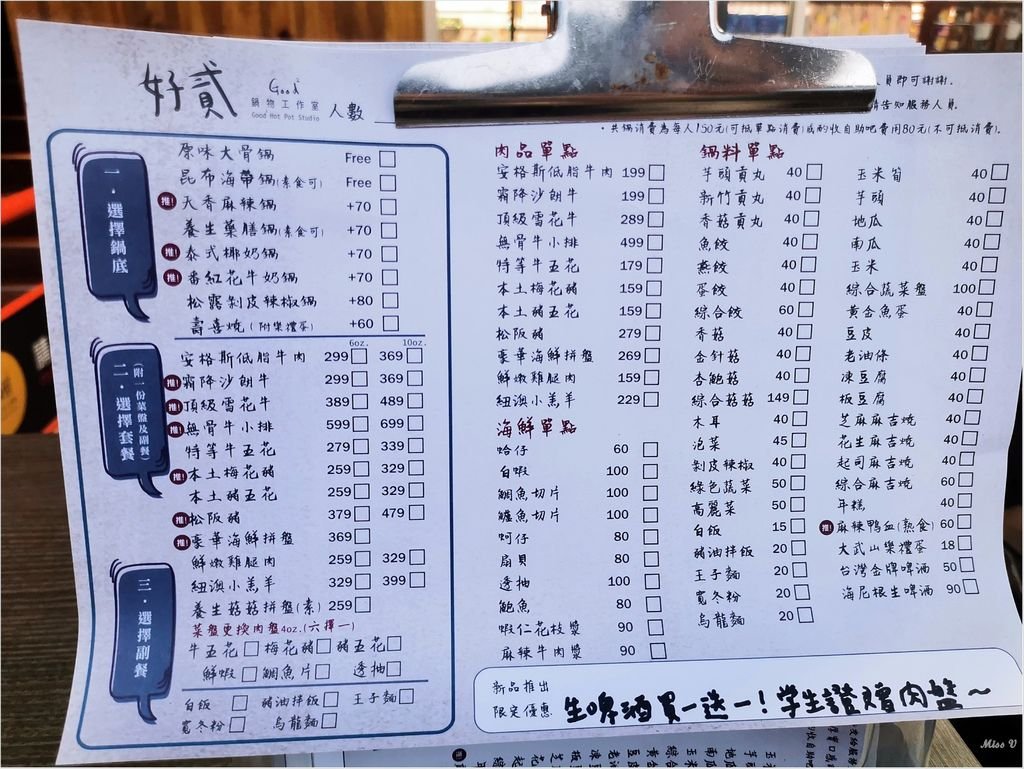 好貳
Good²
鍋物工作室
Good Hot Pot Studio
人數
員即可謝謝.
請告知服務人員.
・共鍋消費為每人150元(可抵單點消費)或酌收自助吧費用80元(不可抵消費).
一・選擇鍋底
原味大骨鍋 Free
昆布海帶鍋(素食可) Free
推! 天香麻辣鍋 +70
養生藥膳鍋(素食可) +70
推! 泰式椰奶鍋 +70
推! 番紅花牛奶鍋 +70
松露剝皮辣椒鍋 +80
壽喜燒(附樂禮蛋) +60
二・選擇套餐
(附一份菜盤及副餐)
6oz. 10oz.
安格斯低脂牛肉 299 369
推! 霜降沙朗牛 299 369
推! 頂級雪花牛 389 489
推! 無骨牛小排 599 699
特等牛五花 279 339
推! 本土梅花豬 259 329
本土豬五花 259 329
推! 松阪豬 379 479
推! 豪華海鮮拼盤 369
鮮嫩雞腿肉 259 329
紐澳小羔羊 329 399
養生菇菇拼盤(素) 259
菜盤更換肉盤4oz.(六擇一)
牛五花 梅花豬 豬五花
鮮蝦 鯛魚片 透抽
三・選擇副餐
白飯 豬油拌飯 王子麵
寬冬粉 烏龍麵
肉品單點
安格斯低脂牛肉 199
霜降沙朗牛 199
頂級雪花牛 289
無骨牛小排 499
特等牛五花 179
本土梅花豬 159
本土豬五花 159
松阪豬 279
豪華海鮮拼盤 269
鮮嫩雞腿肉 159
紐澳小羔羊 229
海鮮單點
蛤仔 60
白蝦 100
鯛魚切片 100
鱸魚切片 100
蚵仔 80
扇貝 80
透抽 100
鮑魚 80
蝦仁花枝漿 90
麻辣牛肉漿 90
鍋料單點
芋頭貢丸 40
新竹貢丸 40
香菇貢丸 40
魚餃 40
燕餃 40
蛋餃 40
綜合餃 60
香菇 40
金針菇 40
杏鮑菇 40
綜合菇菇 149
木耳 40
泡菜 45
剝皮辣椒 40
綠色蔬菜 50
高麗菜 50
白飯 15
豬油拌飯 20
王子麵 20
寬冬粉 20
烏龍麵 20
玉米筍 40
芋頭 40
地瓜 40
南瓜 40
玉米 40
綜合蔬菜盤 100
黃金魚蛋 40
豆皮 40
老油條 40
凍豆腐 40
板豆腐 40
芝麻麻吉燒 40
花生麻吉燒 40
起司麻吉燒 40
綜合麻吉燒 60
年糕 40
推! 麻辣鴨血(熱食) 60
大武山樂禮蛋 18
台灣金牌啤酒 50
海尼根生啤酒 90
新品推出
限定優惠
生啤酒買一送一!学生讚贈肉盤~
Miss V